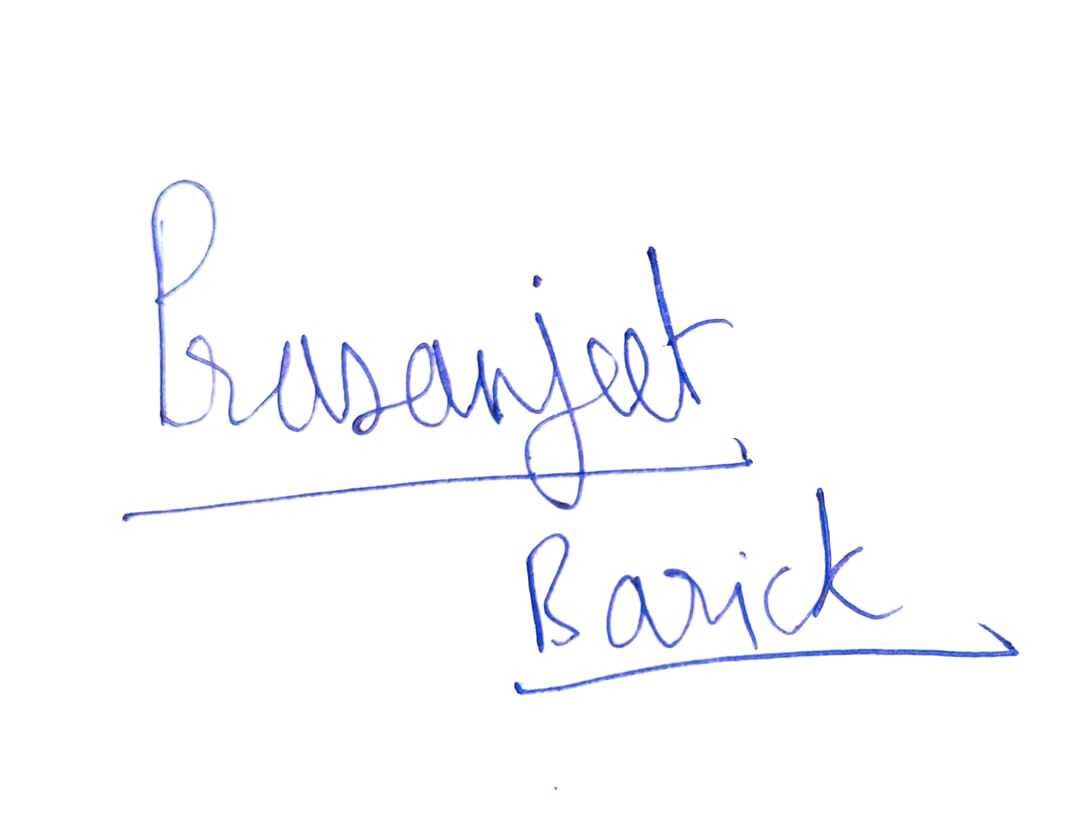 Prasanjeet
Barick